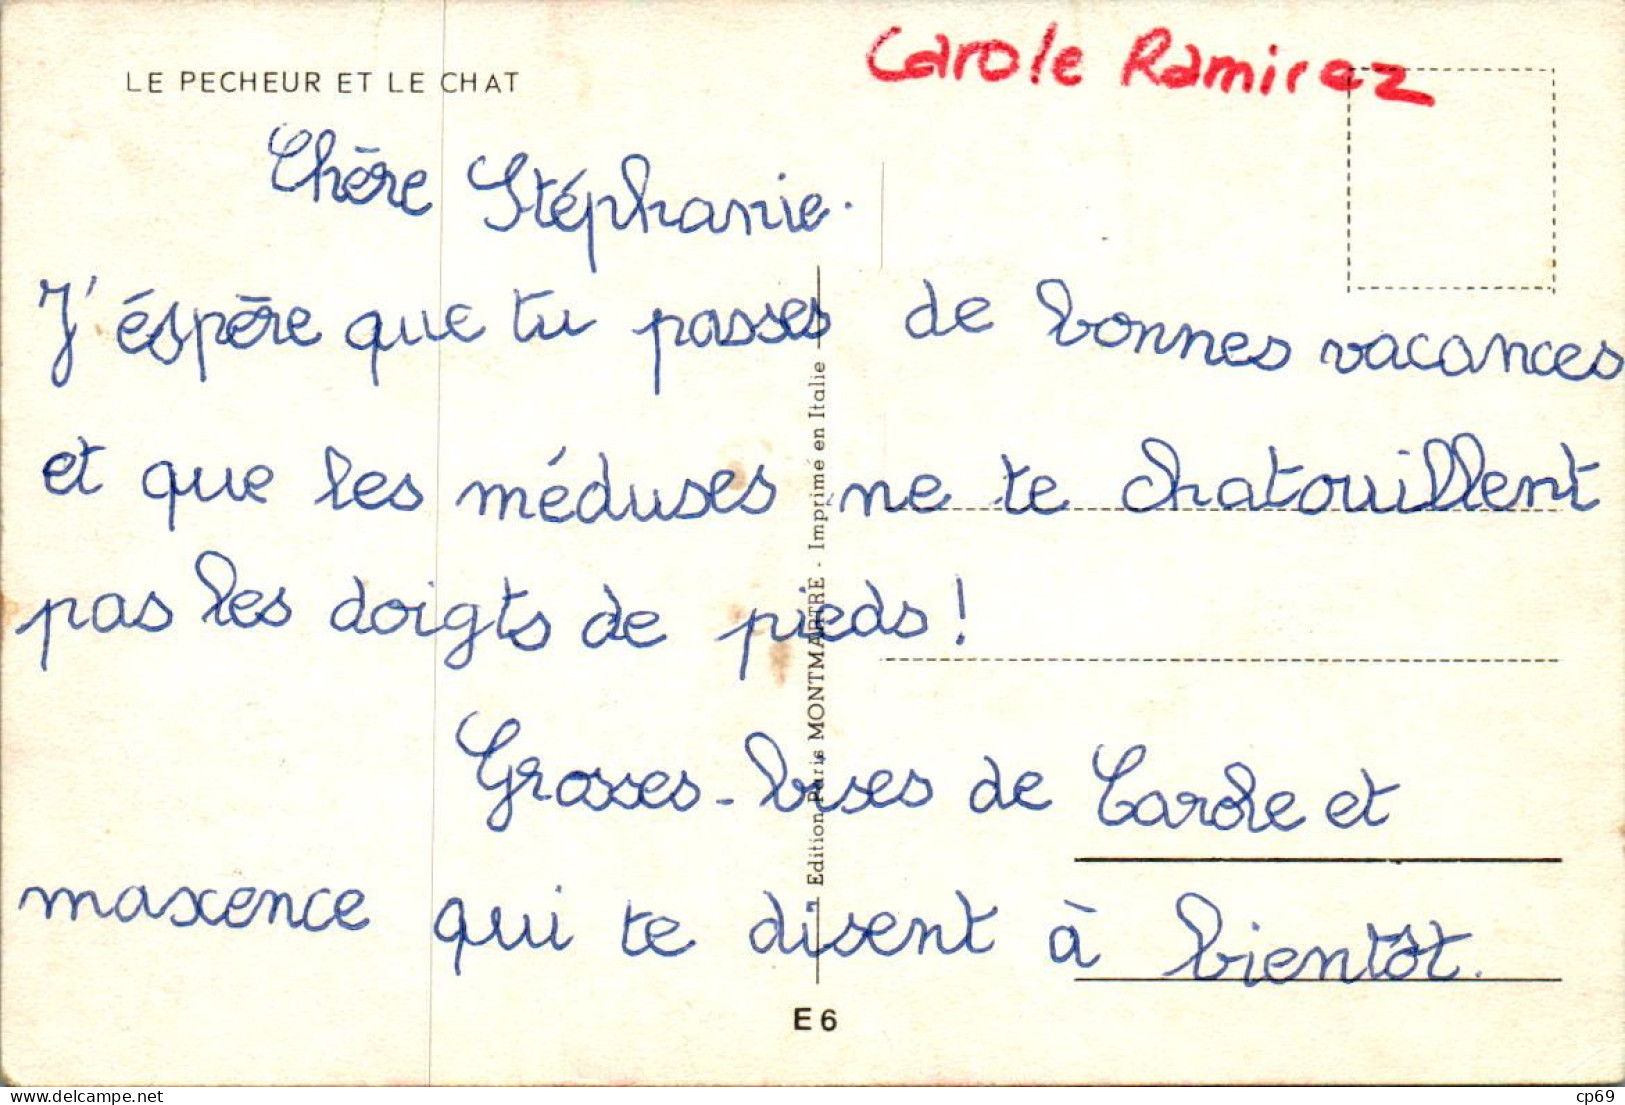 Carole Ramirez
LE PECHEUR ET LE CHAT
Chère Stéphanie.
J'éspère que tu passes de bonnes vacances
et que les méduses ne te chatouillent
pas les doigts de pieds !
Grosses-bises de Carole et
maxence qui te disent à bientôt.
Edition Paris MONTMARTRE - Imprimé en Italie
E6
delcampe.net
cp69